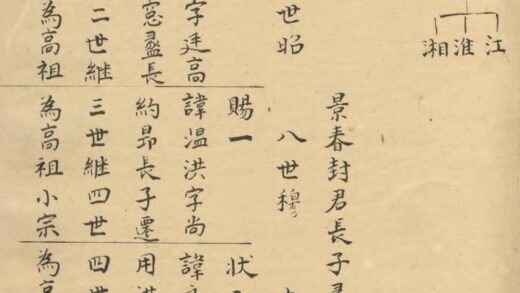 江
淮
湘
景春封君長子
世昭
八世穆
賜一
狀
字廷高
諱温洪字尚
諱
窓盝長
約昂長子遷
用洪
二世維
三世維四世
四世
為高祖
為高祖小宗
為高